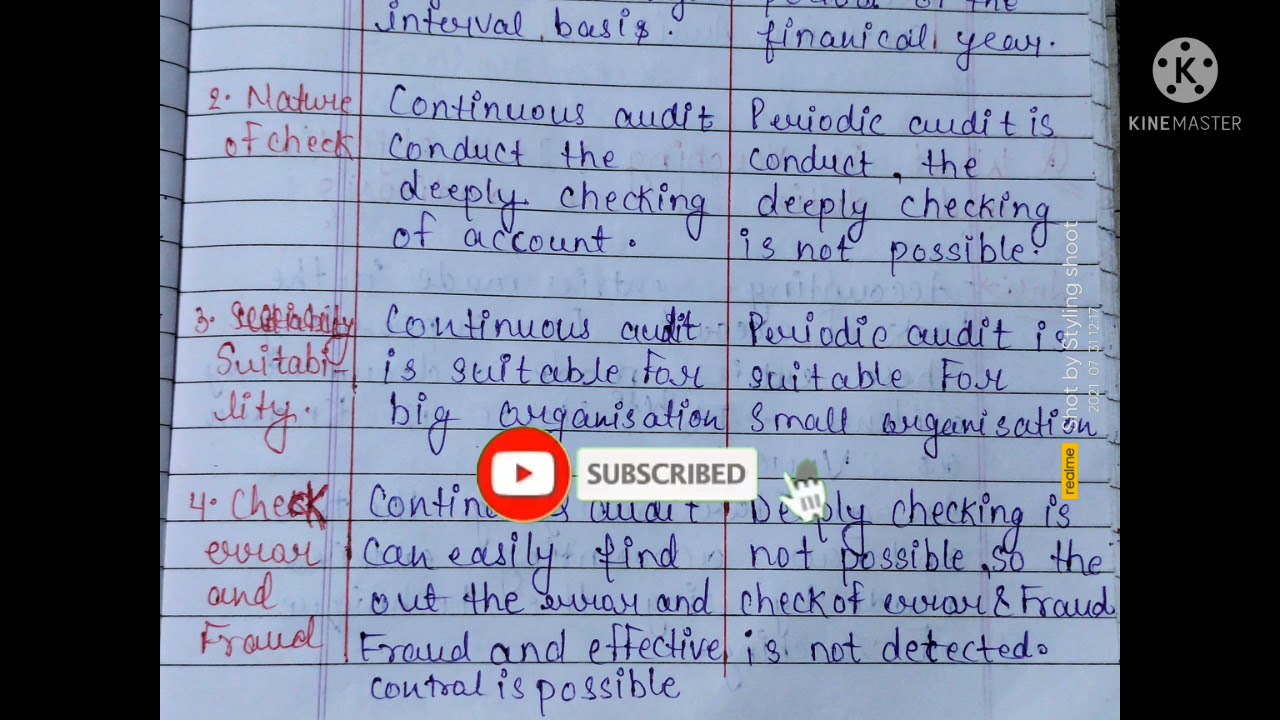 interval basis.
period of the
finanical year.
2. Nature
of check
Continuous audit
conduct the
deeply checking
of account.
Periodic audit is
conduct, the
deeply checking
is not possible.
3.
Suitabi-
lity.
Continuous audit
is suitable For
big organisation
Periodic audit is
suitable For
small organisation
4. Check
error
and
Fraud
Continuous audit
can easily find
out the error and
Fraud and effective
control is possible
Deeply checking is
not possible, so the
check of error & Fraud
is not detected.
SUBSCRIBED
K
KINEMASTER
realme
Shot by Styling shoot